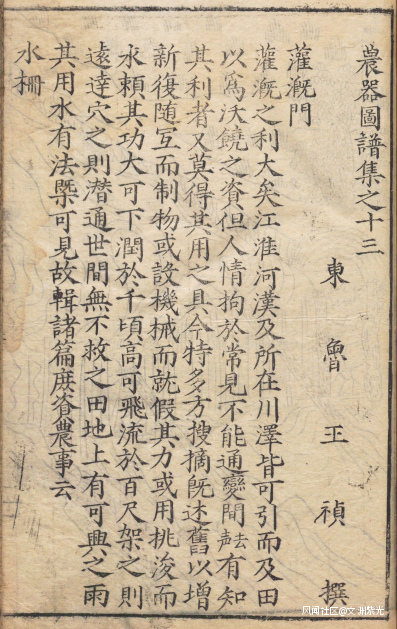 農器圖譜集之十三
東魯王禎撰
灌溉門
灌溉之利大矣江淮河漢及所在川澤皆可引而及田
以爲沃饒之資但人情拘於常見不能通變間有知
其利者又莫得其用之具今特多方搜摘旣述舊以增
新復隨宜而制物或設機械而就假其力或用挑浚而
永賴其功大可下潤於千頃高可飛流於百尺架之則
遠達穴之則潛通世間無不救之田地上有可興之雨
其用水有法槩可見故輯諸篇庶資農事云
水柵
风闻社区@文洲紫光